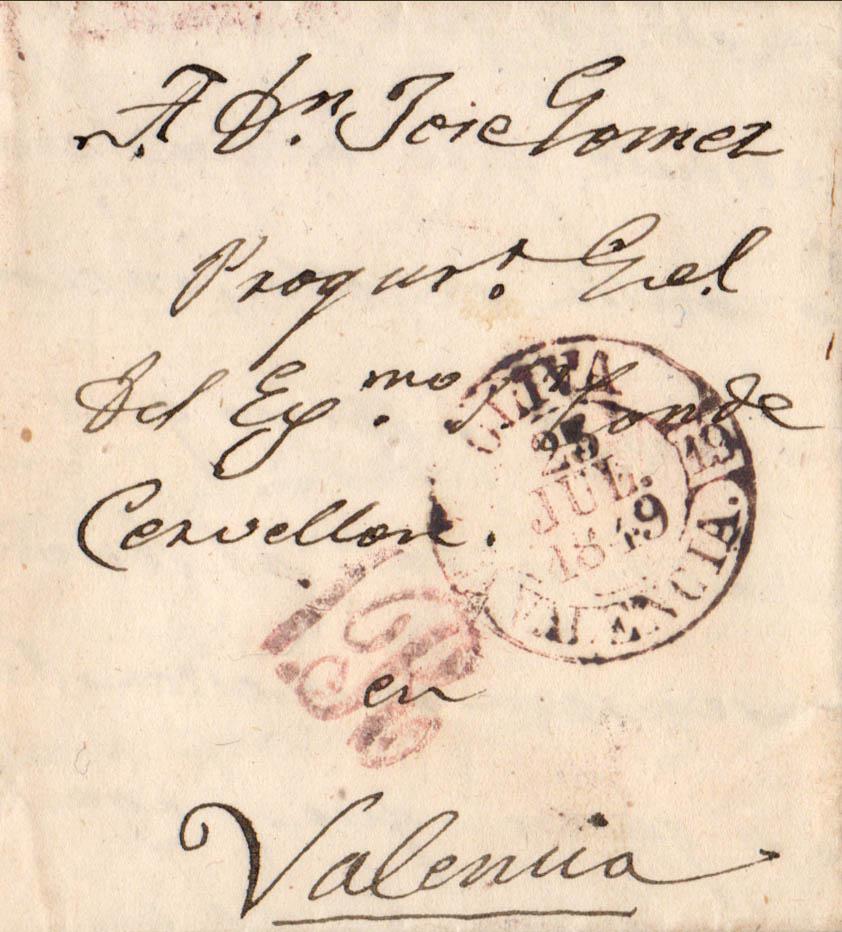 A Dn. Jose Gomez
Procurr. Gel.
Del Exmo. Sr. Conde
Cervellon.
en
Valencia
OLIVA
25
JUL.
1849
19
VALENCIA.
1R